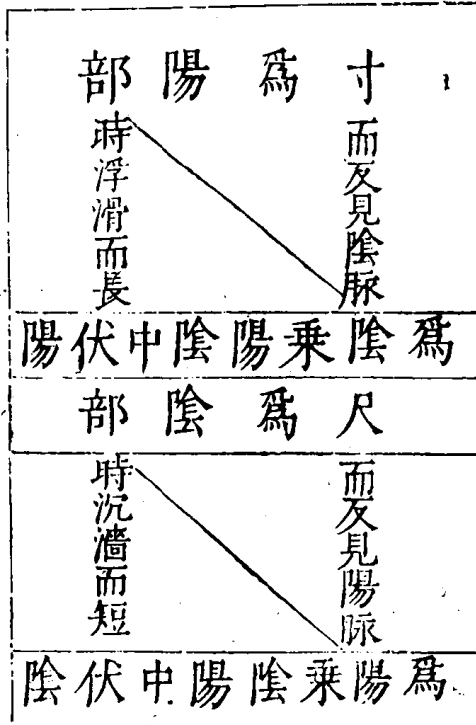 寸爲陽部
而反見陰脉
時浮滑而長
爲陰乘陽陰中伏陽
尺爲陰部
而反見陽脉
時沉濇而短
爲陽乘陰陽中伏陰